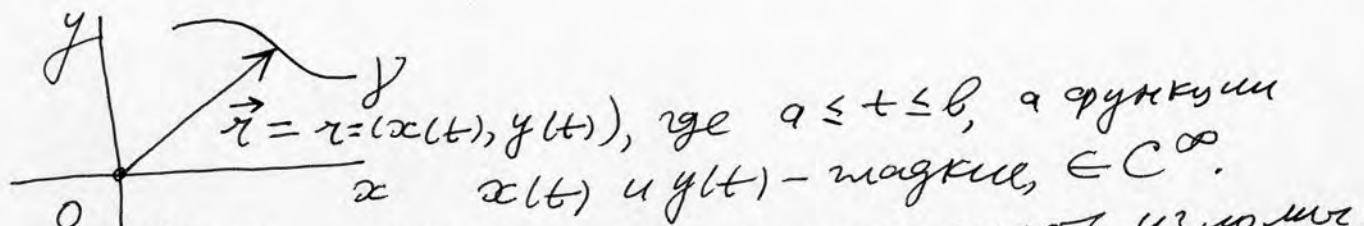 y
γ
r⃗ = r = (x(t), y(t)), где a ≤ t ≤ b, а функции
x x(t) и y(t) – гладкие, ∈ C^∞.
0